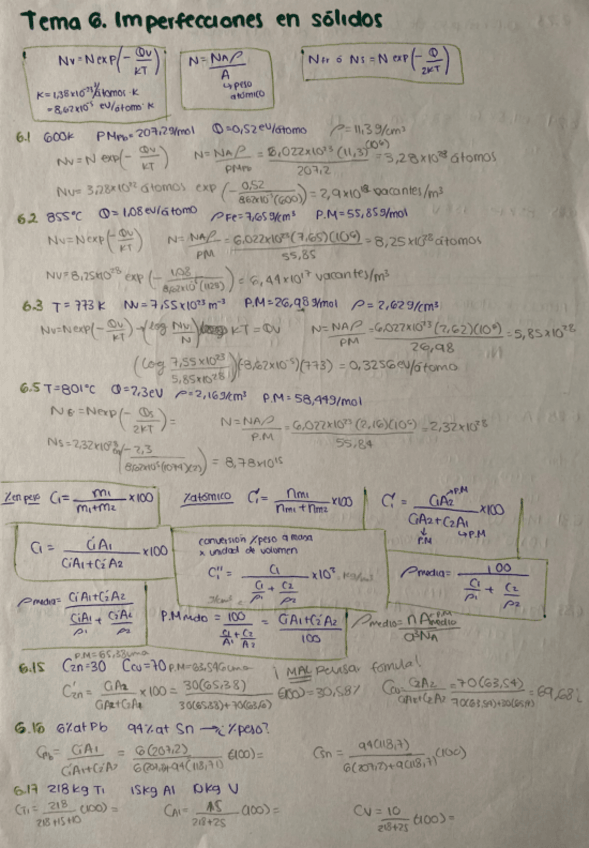 Tema 6. Imperfecciones en sólidos
Nv = N exp(- Qv/KT)
K = 1,38x10⁻²³ J/átomos·K
= 8,62x10⁻⁵ eV/átomo·K
N = NAρ/A
↳ peso atómico
Nsr ó Ns = N exp(- Q/2KT)
6.1 600K PMPb = 207,2g/mol Q = 0,52 eV/átomo ρ = 11,3 g/cm³
Nv = N exp(- Qv/KT) N = NAρ/PMPb = 6,022x10²³(11,3)(10⁶)/207,2 = 3,28x10²⁸ átomos
átomos exp(- 0,52/8,62x10⁻⁵(600)) = 2,9x10¹⁸ vacantes/m³
6.2 855°C Q = 1,08 eV/átomo ρFe = 7,65 g/cm³ P.M = 55,85 g/mol
Nv = N exp(- Qv/KT) N = NAρ/PM = 6,022x10²³(7,65)(10⁶)/55,85 = 8,25x10²⁸ átomos
Nv = 8,25x10²⁸ exp(- 1,08/8,62x10⁻⁵(1128)) = vacantes/m³
6.3 T = 773K Nv = 7,55x10²³ m⁻³ P.M = 26,98 g/mol ρ = 2,62 g/cm³
Nv = N exp(- Qv/KT) (log Nv/N) KT = Qv N = NAρ/PM = 6,022x10²³(2,62)(10⁶)/26,98 = 5,85x10²⁸
(log 7,55x10²³/5,85x10²⁸)(-8,62x10⁻⁵)(773) = 0,3256 eV/átomo
6.5 T = 801°C Q = 2,3eV ρ = 2,16 g/cm³ P.M = 58,44 g/mol
= N exp(- Qs/2KT) = N = NAρ/P.M = 6,022x10²³(2,16)(10⁶)/55,84 = 2,32x10²⁸
Ns = 2,32x10²⁸ (- 2,3/8,62x10⁻⁵(1074)(2)) = 8,78x10¹⁵
% en peso C₁ = m₁/m₁+m₂ x100
% atómico C₁' = nm₁/nm₁+nm₂ x100
C₁' = C₁A₂/C₁A₂+C₂A₁ x100
P.M
C₁ = C₁'A₁/C₁'A₁+C₂'A₂ x100
conversión % peso a masa
x unidad de volumen
C₁'' = C₁/(C₁/ρ₁ + C₂/ρ₂) x10³
ρmedia = 100/(C₁/ρ₁ + C₂/ρ₂)
ρmedia = C₁'A₁+C₂'A₂/(C₁'A₁/ρ₁ + C₂'A₂/ρ₂)
P.Mmedio = 100/(C₁/A₁ + C₂/A₂) = C₁'A₁+C₂'A₂/100
ρmedia = nAmedio/a³NA
P.M = 65,38uma
6.15 Czn = 30 Ccu = 70 P.M = 63,54 uma ¡MAL pensar fórmula!
C'zn = C₁A₂/C₁A₂+C₂A₁ x100 = 30(65,38)/30(65,38)+70(63,6) (100) = 30,58%
Ccu = C₂A₂/C₁A₂+C₂A₁ = 70(63,54)/ = 69,68%
6.16 6%at Pb 94%at Sn → ¿%peso?
CPb = C₁'A₁/C₁'A₁+C₂'A₂ = 6(207,2)/6(207,2)+94(118,7) (100) =
Csn = 94(118,7)/6(207,2)+9(118,7) (100)
6.17 218kg Ti 15kg Al 10kg V
CTi = 218/218+15+10 (100) =
CAl = 15/218+25 (100) =
CV = 10/218+25 (100) =